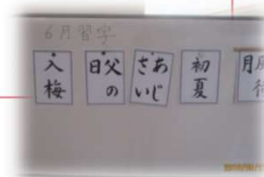 6月習字
入梅
父の日
あじさい
初夏